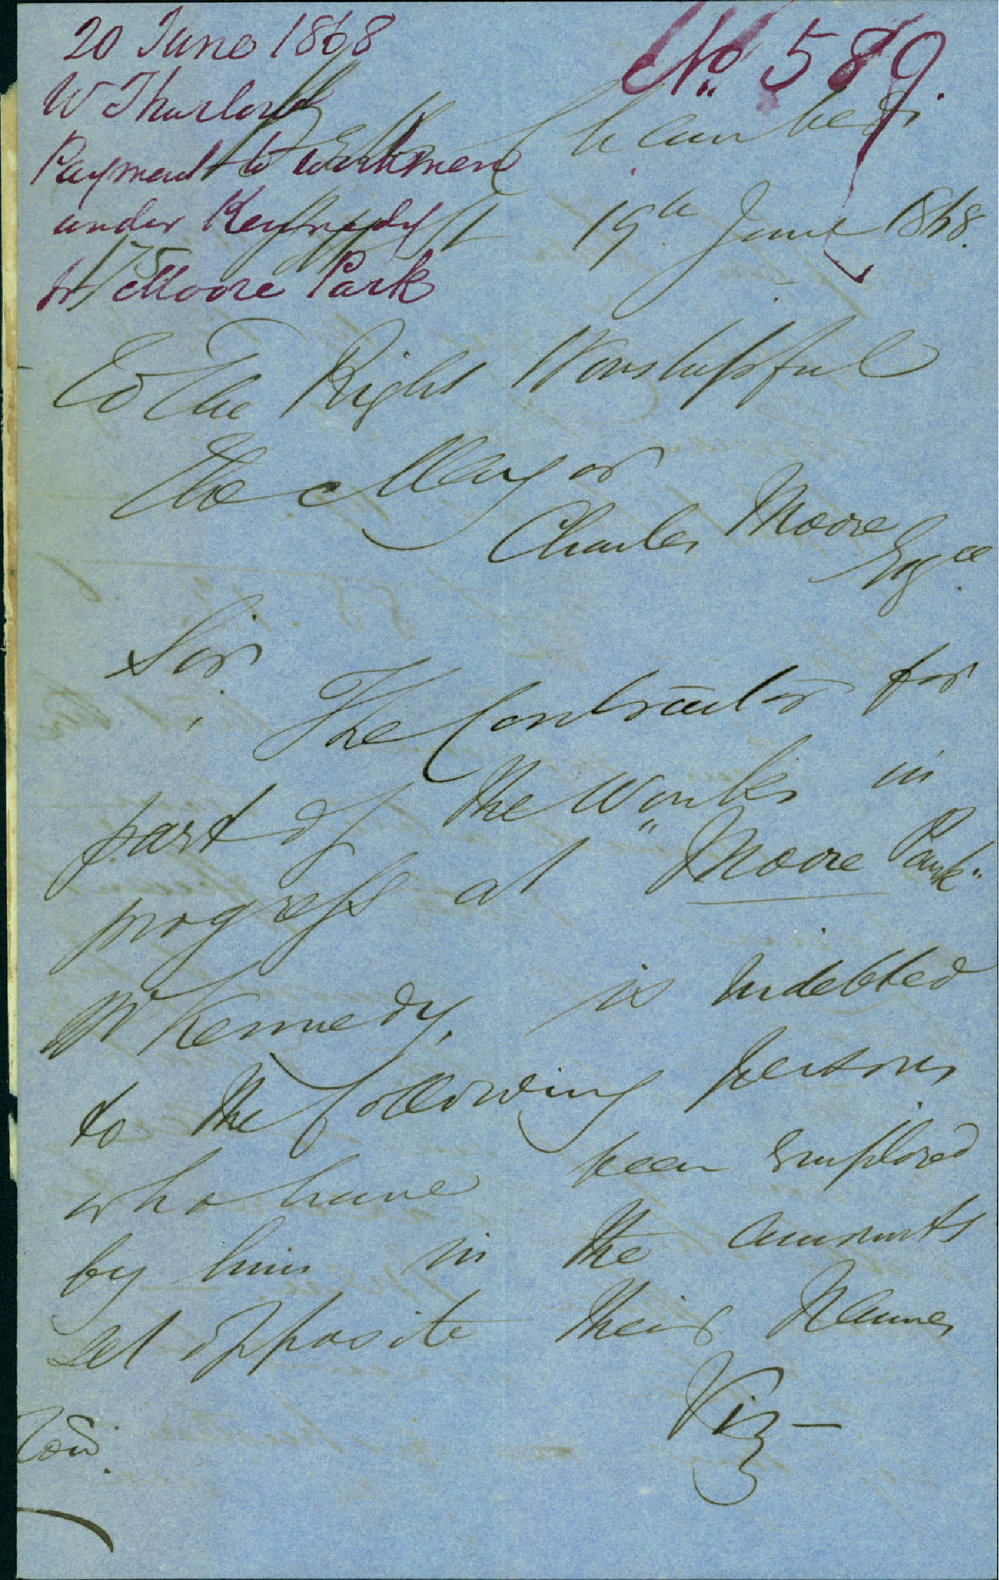 20 June 1868
W Thurlow
Payment to workmen
under Kennedy
at Moore Park
No. 589.
Chambers
19th June 1868.
175
To The Right Worshipful
The Mayor
Charles Moore
Esqre
Sir.
The Contractor for
part of the Works in
progress at "Moore Park"
Mr Kennedy, is indebted
to the following persons
who have been employed
by him in the amounts
set opposite their Names
Viz –